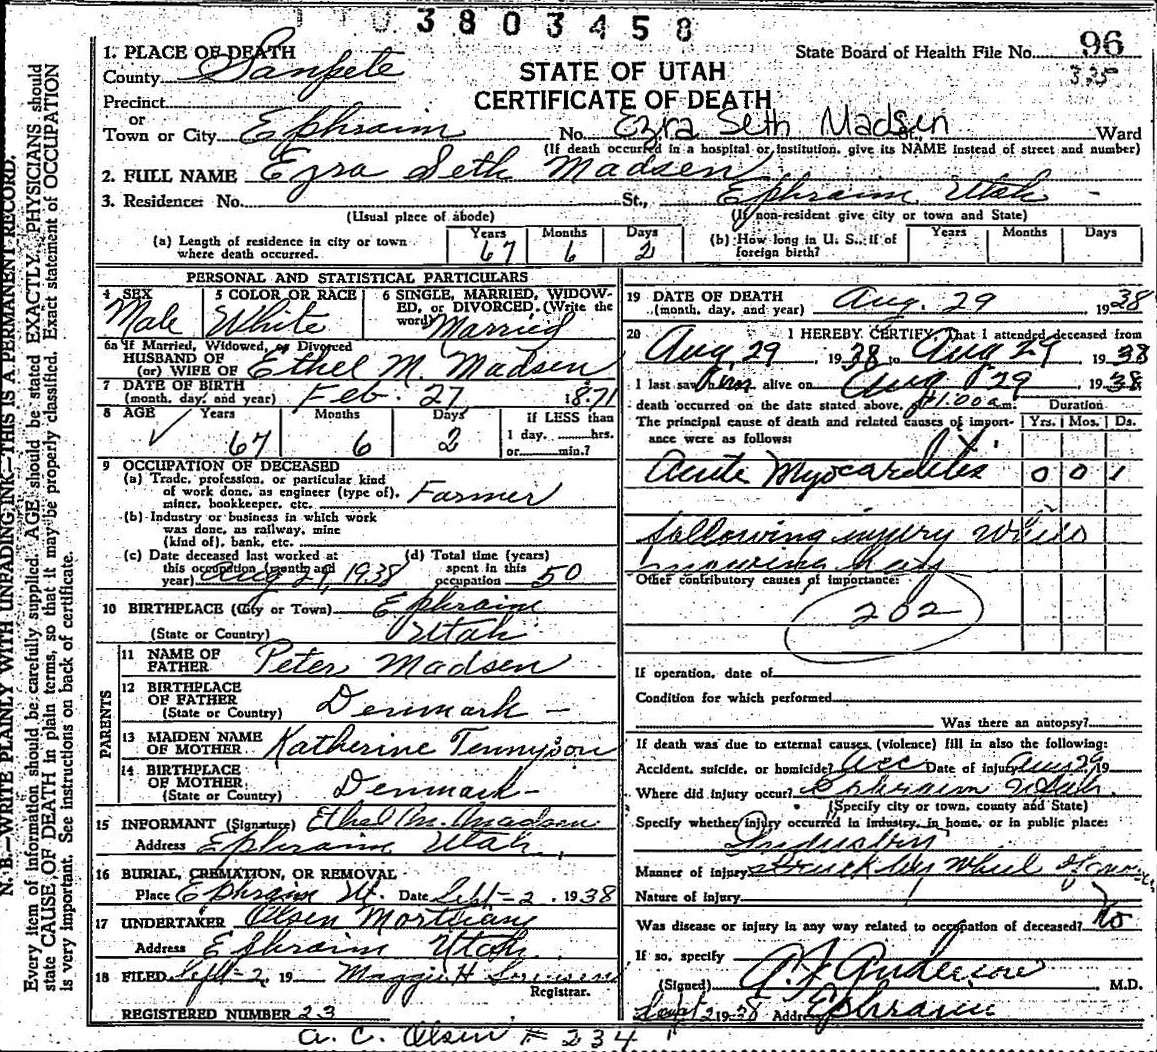 3803458
State Board of Health File No. 96
335
STATE OF UTAH
CERTIFICATE OF DEATH
1. PLACE OF DEATH
County Sanpete
Precinct
or
Town or City Ephraim No. Ezra Seth Madsen St., Ward
(If death occurred in a hospital or institution, give its NAME instead of street and number)
2. FULL NAME Ezra Seth Madsen
3. Residence: No. St., Ephraim Utah -
(Usual place of abode) (If non-resident give city or town and State)
(a) Length of residence in city or town where death occurred. Years 67 Months 6 Days 2
(b) How long in U. S., if of foreign birth? Years Months Days
PERSONAL AND STATISTICAL PARTICULARS
4 SEX Male
5 COLOR OR RACE White
6 SINGLE, MARRIED, WIDOWED, or DIVORCED. (Write the word) Married
6a If Married, Widowed, or Divorced
HUSBAND OF
(or) WIFE OF Ethel M. Madsen
7 DATE OF BIRTH
(month, day, and year) Feb. 27 1871
8 AGE Years 67 Months 6 Days 2 If LESS than
1 day, hrs.
or min.?
9 OCCUPATION OF DECEASED
(a) Trade, profession, or particular kind
of work done, as engineer (type of),
miner, bookkeeper, etc. Farmer
(b) Industry or business in which work
was done, as railway, mine
(kind of), bank, etc.
(c) Date deceased last worked at
this occupation (month and
year) Aug 29, 1938
(d) Total time (years)
spent in this
occupation 50
10 BIRTHPLACE (City or Town) Ephraim
(State or Country) Utah
PARENTS
11 NAME OF
FATHER Peter Madsen
12 BIRTHPLACE
OF FATHER
(State or Country) Denmark -
13 MAIDEN NAME
OF MOTHER Katherine Tennyson
14 BIRTHPLACE
OF MOTHER
(State or Country) Denmark -
15 INFORMANT (Signature) Ethel M. Madsen
Address Ephraim Utah
16 BURIAL, CREMATION, OR REMOVAL
Place Ephraim Ut. Date Sept-2, 1938
17 UNDERTAKER Olsen Mortuary
Address Ephraim Utah
18 FILED Sept-2, 19 Maggie H Sorensen
Registrar.
REGISTERED NUMBER 23
19 DATE OF DEATH
(month, day, and year) Aug. 29 1938
20 I HEREBY CERTIFY, That I attended deceased from
Aug 29 1938 to Aug 29 1938
I last saw him alive on Aug 29 1938
death occurred on the date stated above, at 11:00 a.m. Duration
The principal cause of death and related causes of importance were as follows: Yrs. Mos. Ds.
Acute Myocarditis 0 0 1
following injury while
mowing hay
Other contributory causes of importance:
202
If operation, date of
Condition for which performed
Was there an autopsy?
If death was due to external causes, (violence) fill in also the following:
Accident, suicide, or homicide? Acc Date of injury Aug 29 19
Where did injury occur? Ephraim Utah.
(Specify city or town, county and State)
Specify whether injury occurred in industry, in home, or in public place:
Industry
Manner of injury struck by wheel of
Nature of injury
Was disease or injury in any way related to occupation of deceased? No
If so, specify
(Signed) A. J. Anderson M.D.
Sept 2 19 38 Address Ephraim
a. C. Olsen # 234
N. B.—WRITE PLAINLY WITH UNFADING INK—THIS IS A PERMANENT RECORD.
Every item of information should be carefully supplied. AGE should be stated EXACTLY. PHYSICIANS should
state CAUSE OF DEATH in plain terms, so that it may be properly classified. Exact statement of OCCUPATION
is very important. See instructions on back of certificate.